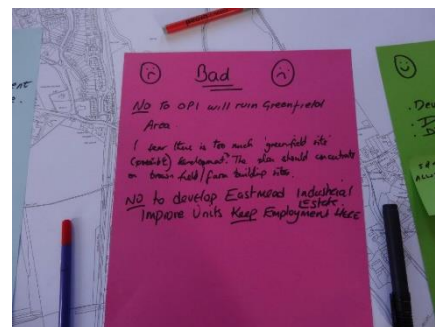 Bad
No To OP1 will ruin Greenfield
Area
I fear there is too much 'greenfield site'
(possible) development? The plan should concentrate
on brown field/farm building sites.
NO to develop Eastmead Industrial
Estate.
Improve Units Keep Employment Here
Dev